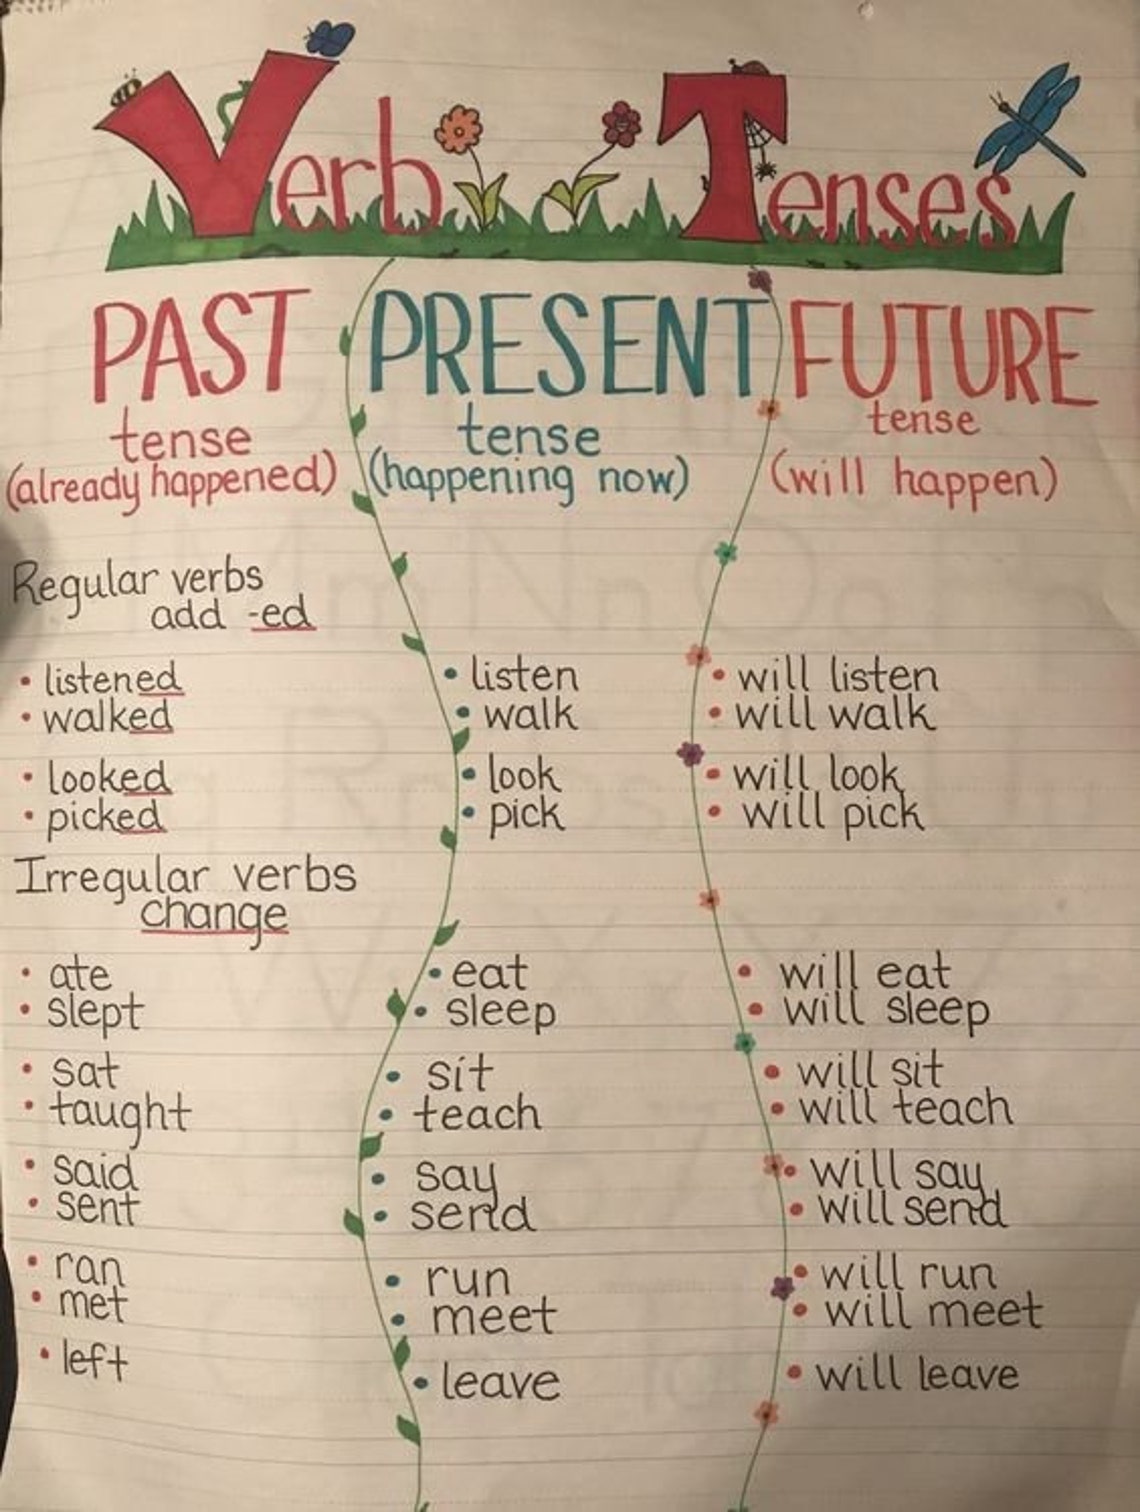 Verb Tenses
PAST PRESENT FUTURE
tense tense tense
(already happened) (happening now) (will happen)
Regular verbs
add -ed
• listened • listen • will listen
• walked • walk • will walk
• looked • look • will look
• picked • pick • will pick
Irregular verbs
change
• ate • eat • will eat
• slept • sleep • will sleep
• sat • sit • will sit
• taught • teach • will teach
• said • say • will say
• sent • send • will send
• ran • run • will run
• met • meet • will meet
• left • leave • will leave